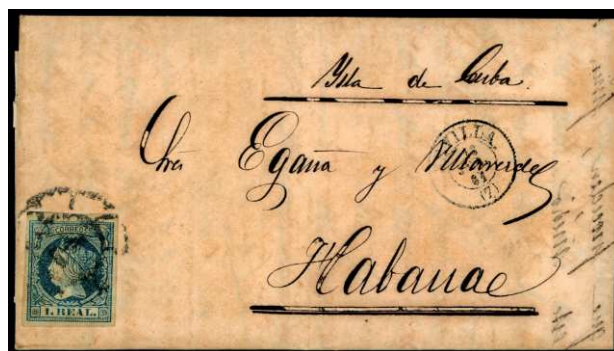 Ysla de Cuba.
Egaña y Villaverde
Habana
CORREOS
1. REAL.